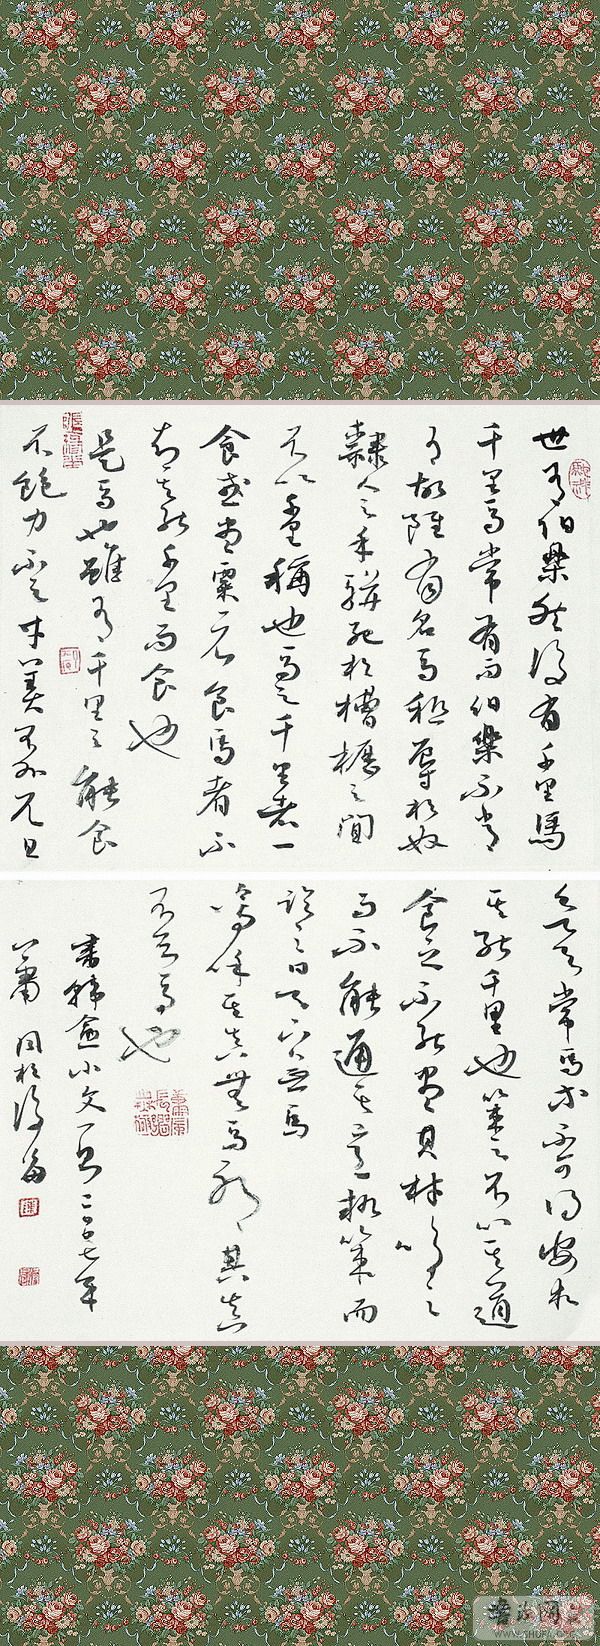 世有伯樂然後有千里馬
千里馬常有而伯樂不常
有故雖有名馬祗辱於奴
隸人之手駢死於槽櫪之間
不以千里稱也馬之千里者一
食或盡粟一石食馬者不
知其能千里而食也
是馬也雖有千里之能食
不飽力不足才美不外見且
欲與常馬等不可得安求
其能千里也策之不以其道
食之不能盡其材鳴之
而不能通其意執策而
臨之曰天下無馬
嗚呼其真無馬邪其真
不知馬也
書韓愈小文一則二〇〇七年